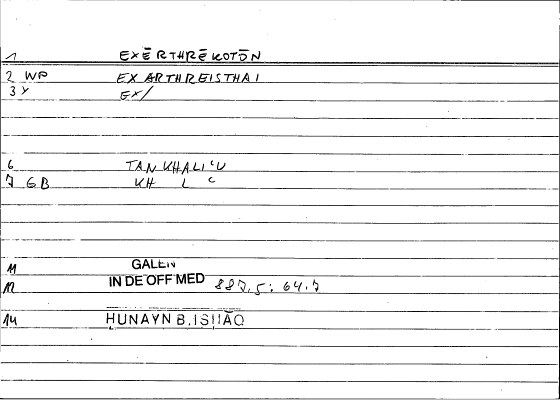 1 EXĒRTHRĒKOTŌN
2 WP EXARTHREISTHAI
3 Y EX/
6 TANKHALIʿU
7 GB KH L ʿ
11 GALEN
12 IN DE OFF MED 887,5: 64.7
14 HUNAYN B.ISḤĀQ